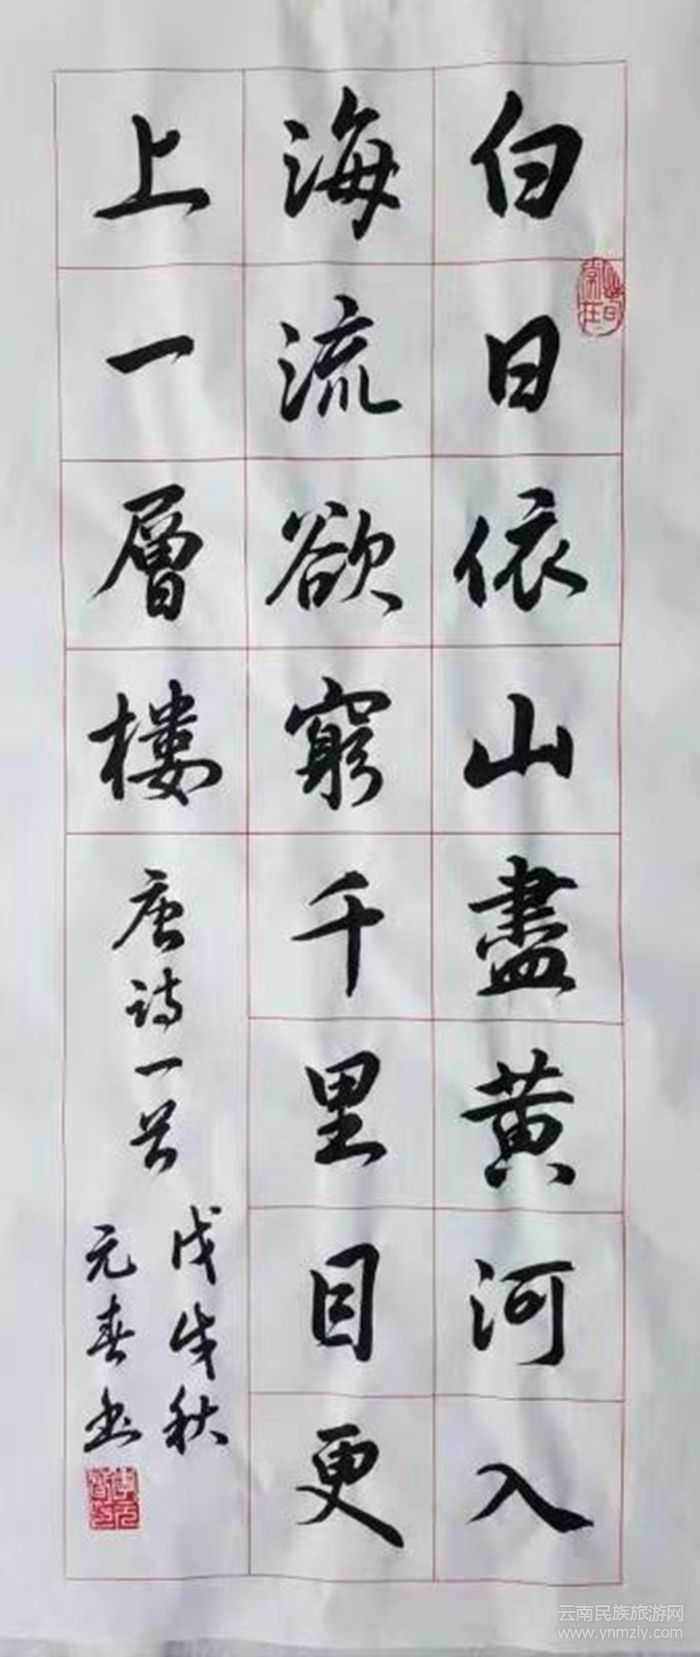 白日依山盡黄河入
海流欲窮千里目更
上一層樓
唐詩一首
戊戌秋
元春书
云南民族旅游网
www.ynmzly.com